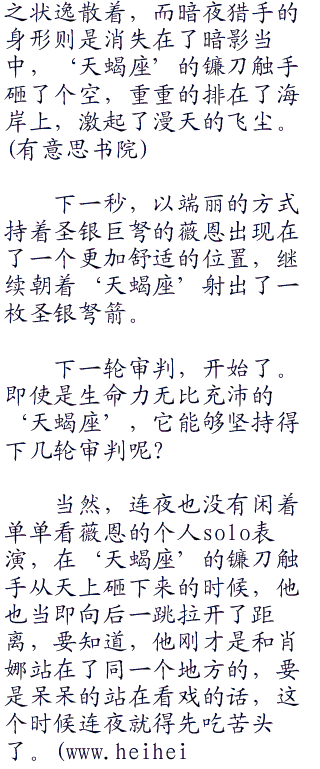 之状逸散着，而暗夜猎手的
身形则是消失在了暗影当
中，‘天蝎座’的镰刀触手
砸了个空，重重的排在了海
岸上，激起了漫天的飞尘。
(有意思书院)
下一秒，以端丽的方式
持着圣银巨弩的薇恩出现在
了一个更加舒适的位置，继
续朝着‘天蝎座’射出了一
枚圣银弩箭。
下一轮审判，开始了。
即使是生命力无比充沛的
‘天蝎座’，它能够坚持得
下几轮审判呢?
当然，连夜也没有闲着
单单看薇恩的个人solo表
演，在‘天蝎座’的镰刀触
手从天上砸下来的时候，他
也当即向后一跳拉开了距
离，要知道，他刚才是和肖
娜站在了同一个地方的，要
是呆呆的站在看戏的话，这
个时候连夜就得先吃苦头
了。(www.heihei